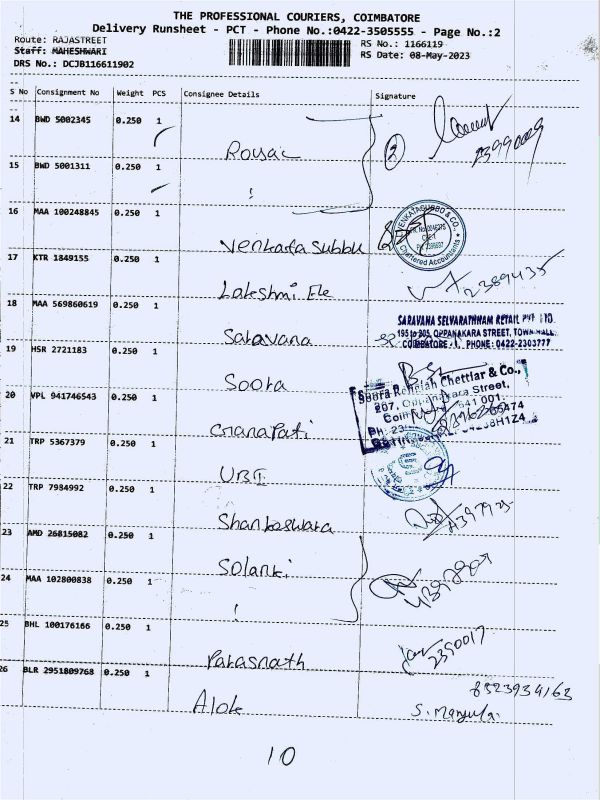 THE PROFESSIONAL COURIERS, COIMBATORE
Delivery Runsheet - PCT - Phone No.:0422-3505555 - Page No.:2
Route: RAJASTREET
Staff: MAHESHWARI
DRS No.: DCJB116611902
RS No.: 1166119
RS Date: 08-May-2023
S No Consignment No Weight PCS Consignee Details Signature
14 BWD 5002345 0.250 1
Rousac 2
15 BWD 5001311 0.250 1
16 MAA 100248845 0.250 1
Venkata Subbu
VENKATASUBBU & CO.,
Chartered Accountants
17 KTR 1849155 0.250 1
Lakshmi Ele 2389435
18 MAA 569860619 0.250 1
Saravana
SARAVANA SELVARATHNAM RETAIL PVT LTD.
195 to 205, OPPANAKARA STREET, TOWN HALL,
COIMBATORE - 1. PHONE: 0422-2303777
19 HSR 2721183 0.250 1
Soora
Chettiar & Co.,
207, Oppanakara Street,
641 001.
20 VPL 941746543 0.250 1
Ganapati
21 TRP 5367379 0.250 1
UBI
22 TRP 7984992 0.250 1
Shankeswara
23 AMD 26815082 0.250 1
Solanki
24 MAA 102800838 0.250 1
25 BHL 100176166 0.250 1
Parasnath 2390017
26 BLR 2951809768 0.250 1
8523934163
Alok S. Manjula
10